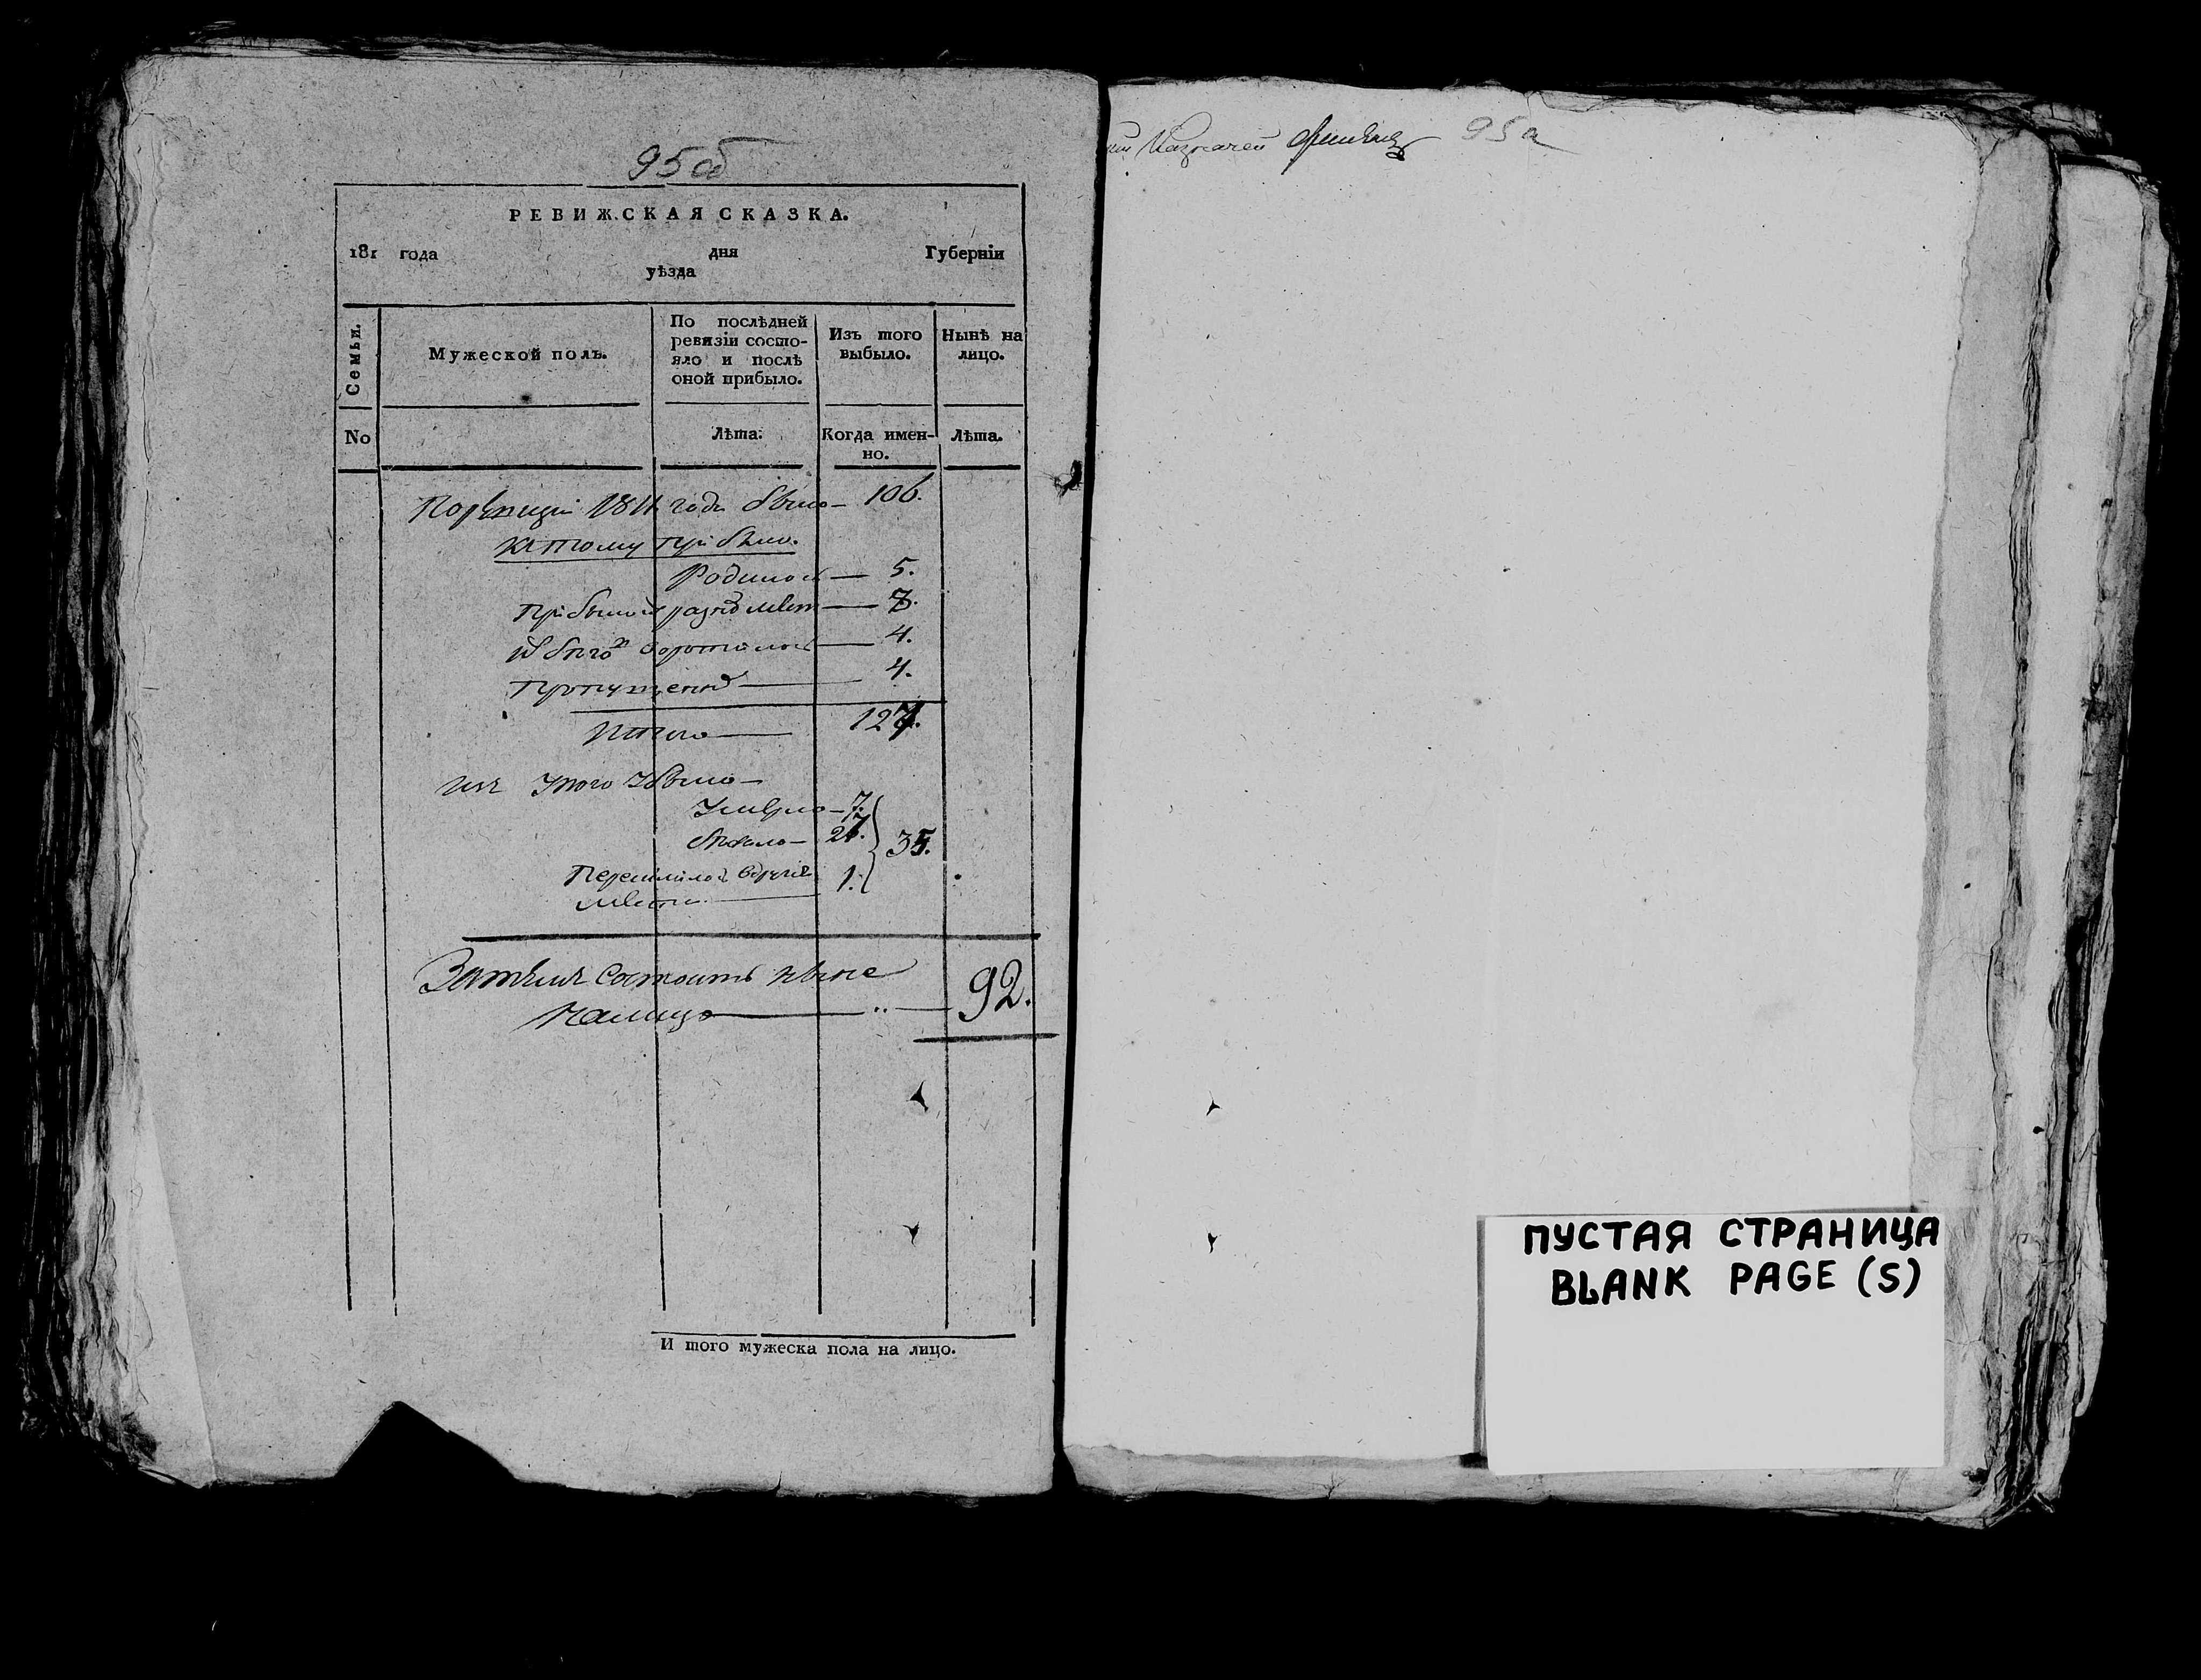 95об
РЕВИЖСКАЯ СКАЗКА.
181 года дня Губерніи
уѣзда
Семьи.
Мужеской полъ.
По послѣдней ревизіи состо-
яло и послѣ оной прибыло.
Изъ того выбыло.
Нынѣ на лицо.
No
Лѣта.
Когда имен-
но.
Лѣта.
Поревизіи 1811 года было — 106.
Ктому прибыло.
Родилось — 5.
Прибыло 
4.
Пропущенно — 4.
Итого — 127.
изъ этого убыло —
Умерло — 7.
бежало — 27.
35.
Переселилось вдругие 1.
места
Затемъ Состоитъ ныне
налицо — 92.
И того мужеска пола на лицо.
Казначей
95а
ПУСТАЯ СТРАНИЦА
BLANK PAGE (S)